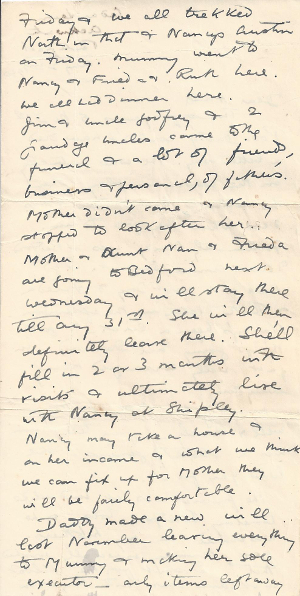 Friday & we all trekked
North in that & Nancy's Austin
on Friday. Mummy went to
Nancy & Frieda & Ruth here.
We all had dinner here.
Jim & Uncle Godfrey & 2
Grandage uncles came to the
funeral & a lot of friends,
business & personal, of father's.
Mother didn't come & Nancy
stopped to look after her.
Mother & Aunt Nan & Frieda
are going to Bedford next
Wednesday & will stay there
till Aug 31st. She will then
definitely leave there. She'll
fill in 2 or 3 months with
visits & ultimately live
with Nancy at Shipley.
Nancy may take a house &
on her income & what we think
we can fix up for Mother they
will be fairly comfortable.
Daddy made a new will
last November leaving everything
to Mummy & making her sole
executor - only items left away